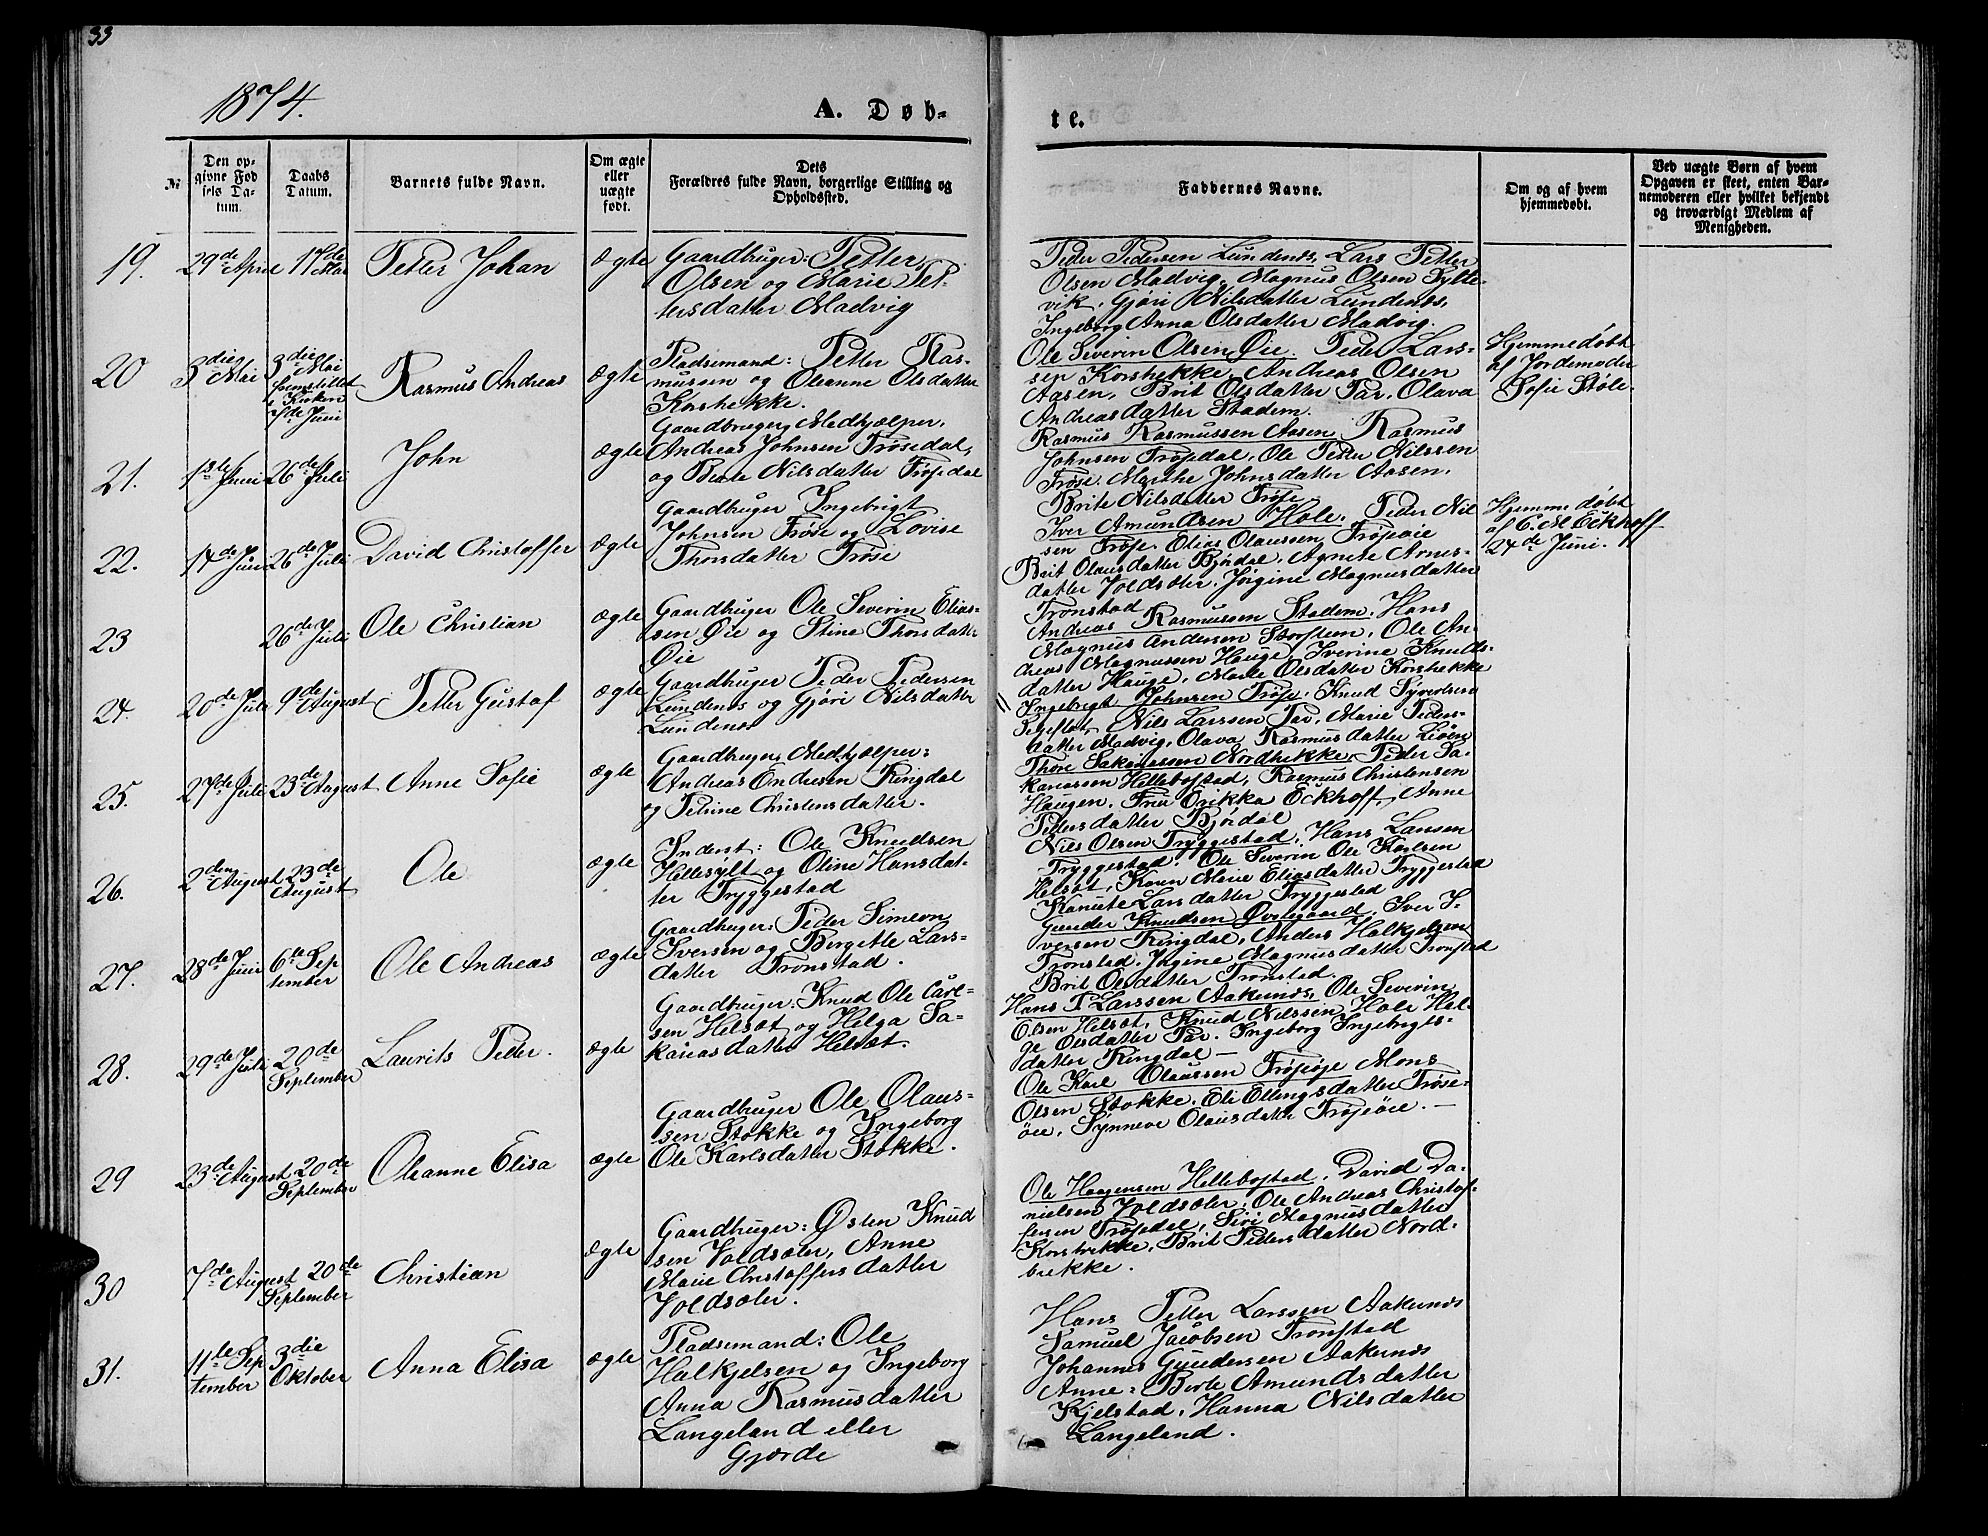 33
1874.
A. Døb-
te.
№
Den op-
givne Fød
sels Da-
tum.
Daabs
Datum.
Barnets fulde Navn.
Om ægte
eller
uægte
født.
Dets
Forældres fulde Navn, borgerlige Stilling og
Opholdssted.
Faddernes Navne.
Om og af hvem
hjemmedøbt.
Ved uægte Børn af hvem
Opgaven er skeet, enten Bar-
nemoderen eller hvilket bekjendt
og troværdigt Medlem af
Menigheden.
19.
29de April
17de Mai
Petter Johan
Ægte
Gaardbruger: Petter
Olsen og Marie Pet-
tersdatter Madvig
Peder Pedersen Lundenæs, Lars Petter
Olsen Madvig, Magnus Olsen Sylte-
vik, Gjøri Nilsdatter Lundenæs,
Ingeborg Anna Olsdatter Madvig.
20
3die Mai
3die Mai
fremstillet
i Kirken
7de Juni
Rasmus Andreas
Ægte
Pladsemand: Petter Ras-
mussen og Oleanne Olsdatter
Korsbrekke.
Ole Severin Olsen Øie, Peder Lars-
sen Korsbrekke, Andreas Olsen
Aasen, Brit Olsdatter Par, Olava
Andreasdatter Stadem.
Hjemmedøbt
af Jordemoder
Sofie Støle.
21.
1ste Juni
26de Juli
John
Ægte
Gaardbrugers Medhjælper,
Andreas Johnsen Frøsedal,
og Berte Nilsdatter Frøsedal
Rasmus Rasmussen Aasen, Rasmus
Johnsen Frøsedal, Ole Peder Nilssen
Frøse, Marthe Johnsdatter Aasen,
Brite Nilsdatter Frøse
22.
14de Juni
26de Juli
David Christoffer
Ægte
Gaardbruger Ingebrigt
Johnsen Frøse og Lovise
Thorsdatter Frøse
Iver Amundsen Hole, Peder Nil
sen Frøse, Elias Olaussen Frøseøie
Brit Olausdatter Bjørdal, Agnete Arnes-
datter Voldsæter, Jørgine Magnusdatter
Tronstad
Hjemmedøbt
af C. M. Eckhoff
24de Juni.
23
26de Juli
Ole Christian
Ægte
Gaardbruger Ole Severin Elias-
sen Øie og Stina Thorsdatter
Øie
Andreas Rasmussen Stadem, Hans
Magnus Andersen Storstein, Ole An-
dreas Magnussen Hauge, Iverine Knuds-
datter Hauge, Marte Olsdatter Korsbrekke
24.
20de Juli
9de August
Petter Gustaf
Ægte
Gaardbruger Peder Pedersen
Lundenæs og Gjøri Nilsdatter
Lundenæs
Ingebrigt Johnsen Frøse, Knud Syvertsen
Nils Larssen Par, Marie Peders-
datter Madvig, Olava Rasmusdatter Liøen
25.
27de Juli
23de August
Anne Sofie
Ægte
Gaardbrugers Medhjælper:
Andreas Endresen Ringdal
og Petrine Christensdatter.
Thore Sakariassen Nordbrekke, Peder Sa-
kariassen Hellebostad, Rasmus Christensen
Haugen, Frue Erikka Eckhoff, Anne
Pedersdatter Bjørdal
26.
2den August
23de
August
Ole
Ægte
Inderst: Ole Knudsen
Hellesylt og Oline Hansdat-
ter Tryggestad
Nils Olsen Tryggestad, Hans Larsen
Tryggestad, Ole Severin Ole Karlsen
Helsæt, Karen Marie Eliasdatter Tryggestad
Kanute Larsdatter Tryggestad
27.
28de Juni
6te Sep
tember
Ole Andreas
Ægte
Gaardbruger: Peder Simeon
Iversen og Bergette Lars-
datter Tronstad.
Gunder Knudsen Øvregaard, Iver I-
versen Ringdal, Anders Halkjelsen
Tronstad, Jørgine Magnusdatter Tronstad
Brit Olsdatter Tronstad.
28.
29de Juli
20de
September
Laurits Peder.
Ægte
Gaardbruger: Knud Ole Carl-
sen Helsæt og Helga Sa-
kariasdatter Helsæt.
Hans P. Larssen Aakernæs, Ole Severin
Olsen Helsæt, Knud Nilssen Hole Hel-
ge Olsdatter Par. Ingeborg Ingebrigts-
datter Ringdal —
29
23de August
20de
September
Oleanne Elisa
Ægte
Gaardbruger Ole Olaus-
sen Stokke og Ingeborg
Ole Karlsdatter Stokke.
Ole Karl Olaussen Frøseøie Mons
Olsen Stokke, Eli Ellingsdatter Frøse-
øie, Synneve Olausdatter Frøseøie. —
30
7de August
20de
September
Christian
Ægte
Gaardbruger: Østen Knud
sen Voldsæter, Anne
Marie Christoffersdatter
Voldsæter.
Ole Haagensen Hellebostad, David Da-
nielsen Voldsæter, Ole Andreas Christof-
fersen Frøsedal, Siri Magnusdatter
Korsbrekke, Brit Pedersdatter Nord-
brekke.
31.
11te Sep
tember
3die
Oktober
Anna Elisa
Ægte
Pladsemand: Ole
Halkjelsen og Ingeborg
Anna Rasmusdatter
Langeland eller
Gjærde
Hans Petter Larssen Aakernæs
Samuel Jacobsen Tronstad
Johannes Gundersen Aakernæs
Anne-Berte Amundsdatter
Kjelstad, Hanna Nilsdatter
Langeland.